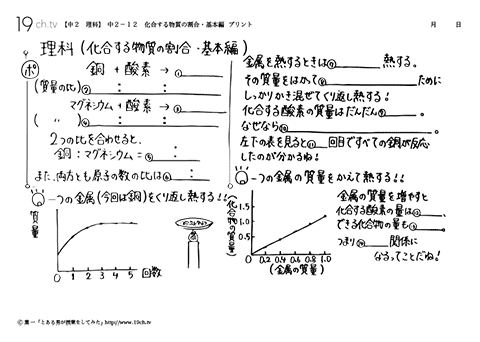 19ch.tv 【中2 理科】 中2-12 化合する物質の割合・基本編 プリント 月 日
理科(化合する物質の割合・基本編)
ポ 銅 + 酸素 → ①
(質量の比) ② : :
マグネシウム + 酸素 → ③
( 〃 ) ④ : :
2つの比を合わせると、
銅:マグネシウム= ⑤ :
また、両方とも原子の数の比は⑥ :
一つの金属(今回は銅)をくり返し熱する!!
質量
0 1 2 3 4 5 回数
金属を熱するときは⑦ 熱する。
その質量をはかって⑧ ために
しっかりかき混ぜてくり返し熱する!
化合する酸素の質量はだんだん⑨ 。
なぜなら⑩ 。
左下の表を見ると⑪ 回目ですべての銅が反応
したのが分かるね!
一つの金属の質量をかえて熱する!!
(化合物の質量)
1.5
1.0
0.5
0 0.2 0.4 0.6 0.8 1.0
(金属の質量)
金属の質量を増やすと
化合する酸素の量は⑫ 、
できる化合物の量も⑬ 。
つまり⑭ 関係に
なるってことだね!
© 葉一「とある男が授業をしてみた」http://www.19ch.tv